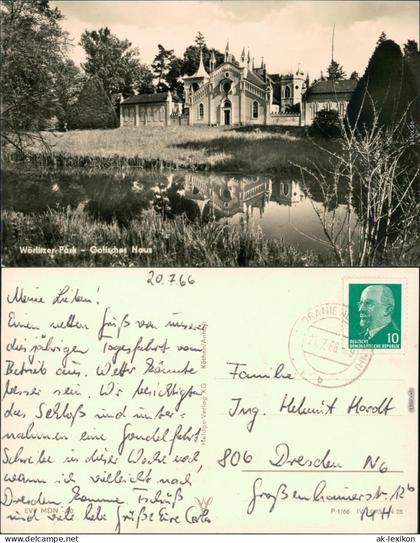 Wörlitzer Park - Gotisches Haus
20.7.66
Meine Lieben!
Einen netten Gruß von unserer
diesjährigen Tagesfahrt vom
Betrieb aus. Wetter könnte
besser sein. Wir besichtigten
das Schloß und unter-
nahmen eine Gondelfahrt.
Schreibe in dieser Woche noch,
wann ich vielleicht nach
Dresden komme. Tschüß
und viele liebe Grüße Eure
EVP MDN
Meloge-Verlag KG Köthen/Anhalt
ORANIEN
21.7.66
b
10
DEUTSCHE
DEMOKRATISCHE REPUBLIK
Familie
Ing. Helmut Hardt
806 Dresden N6
Großenhainerstr. 126
P 1/66
© ak-lexikon.com
ak-lexikon